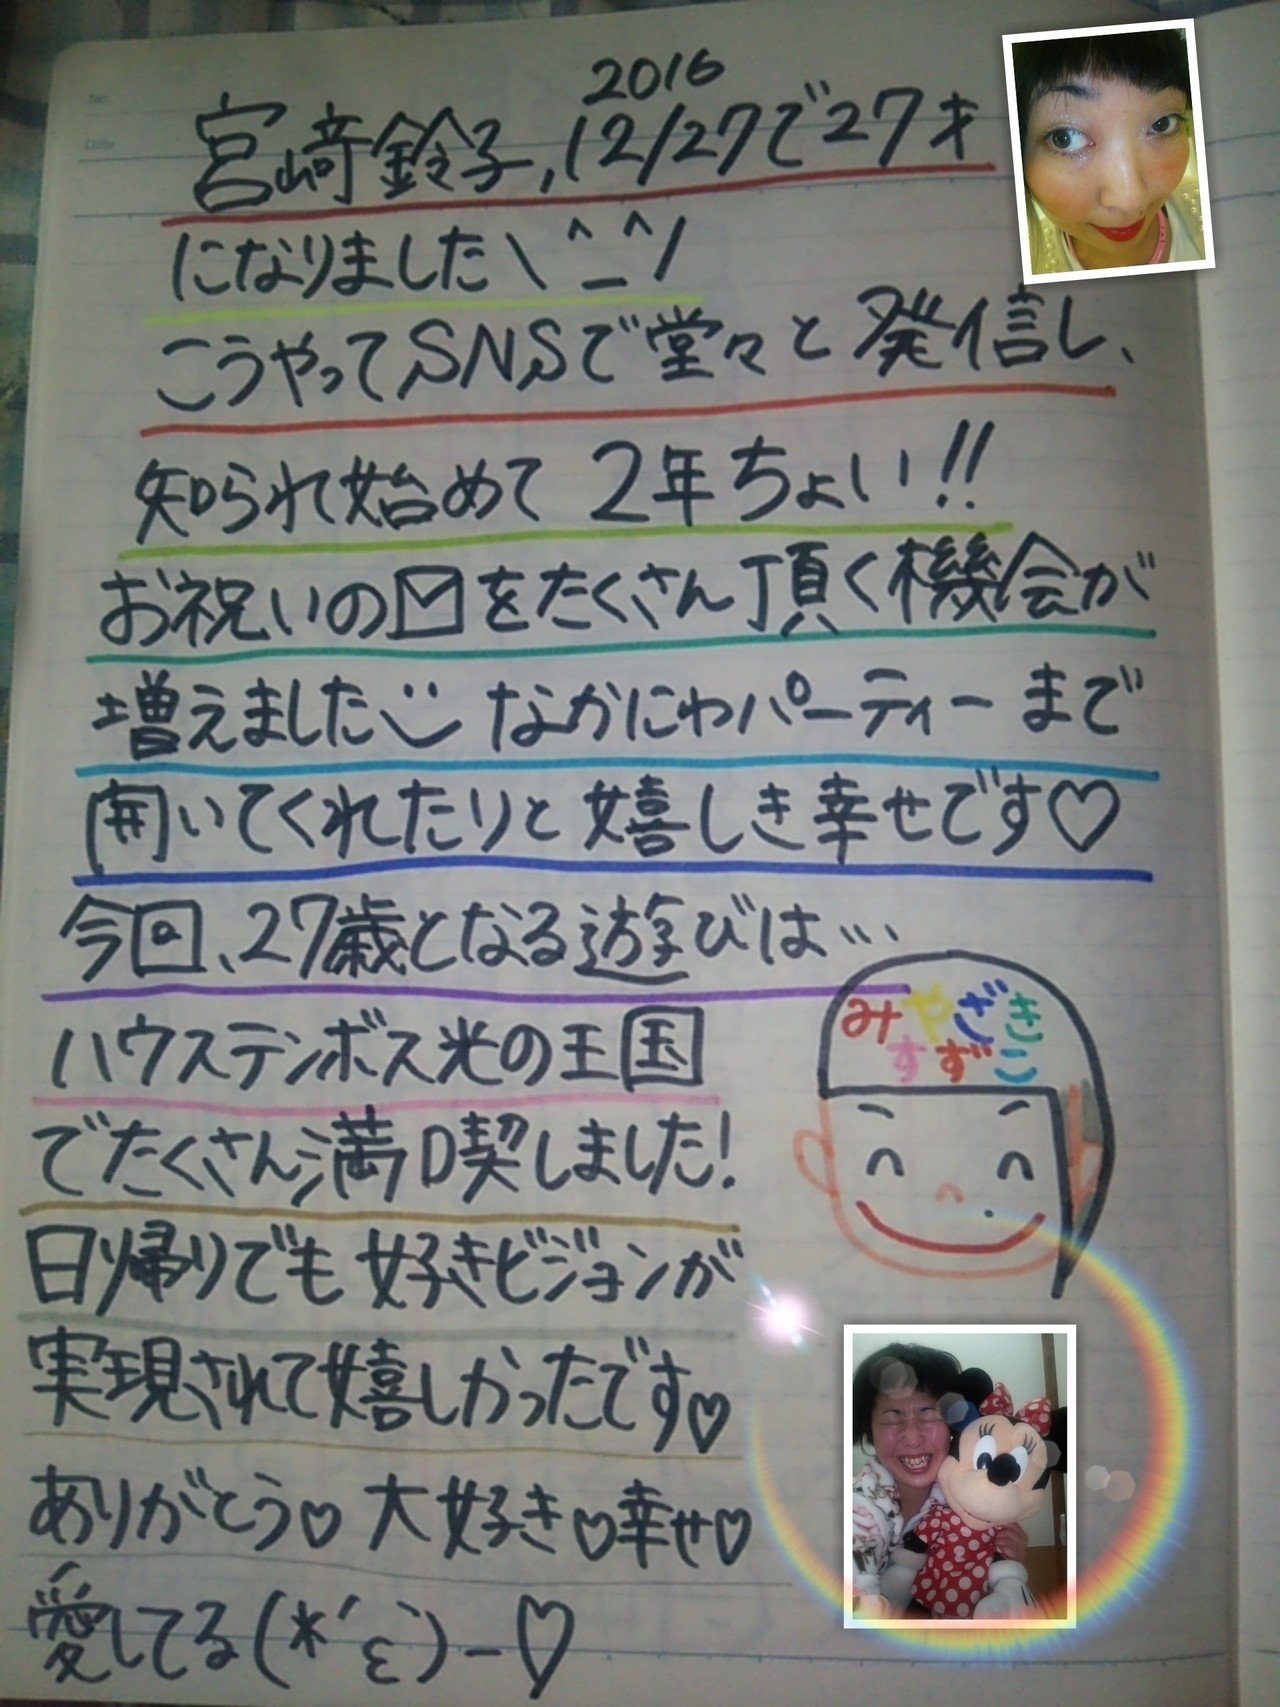 2016
宮崎鈴子,12/27で27才
になりました\^_^/
こうやってSNSで堂々と発信し、
知られ始めて2年ちょい!!
お祝いの✉をたくさん頂く機会が
増えました なかにわパーティーまで
開いてくれたりと嬉しき幸せです♡
今回、27歳となる遊びは…
ハウステンボス光の王国
でたくさん満喫しました!
日帰りでも好きビジョンが
実現されて嬉しかったです♡
ありがとう♡大好き♡幸せ♡
愛してる(*´ε`)-♡
みやざき
すずこ